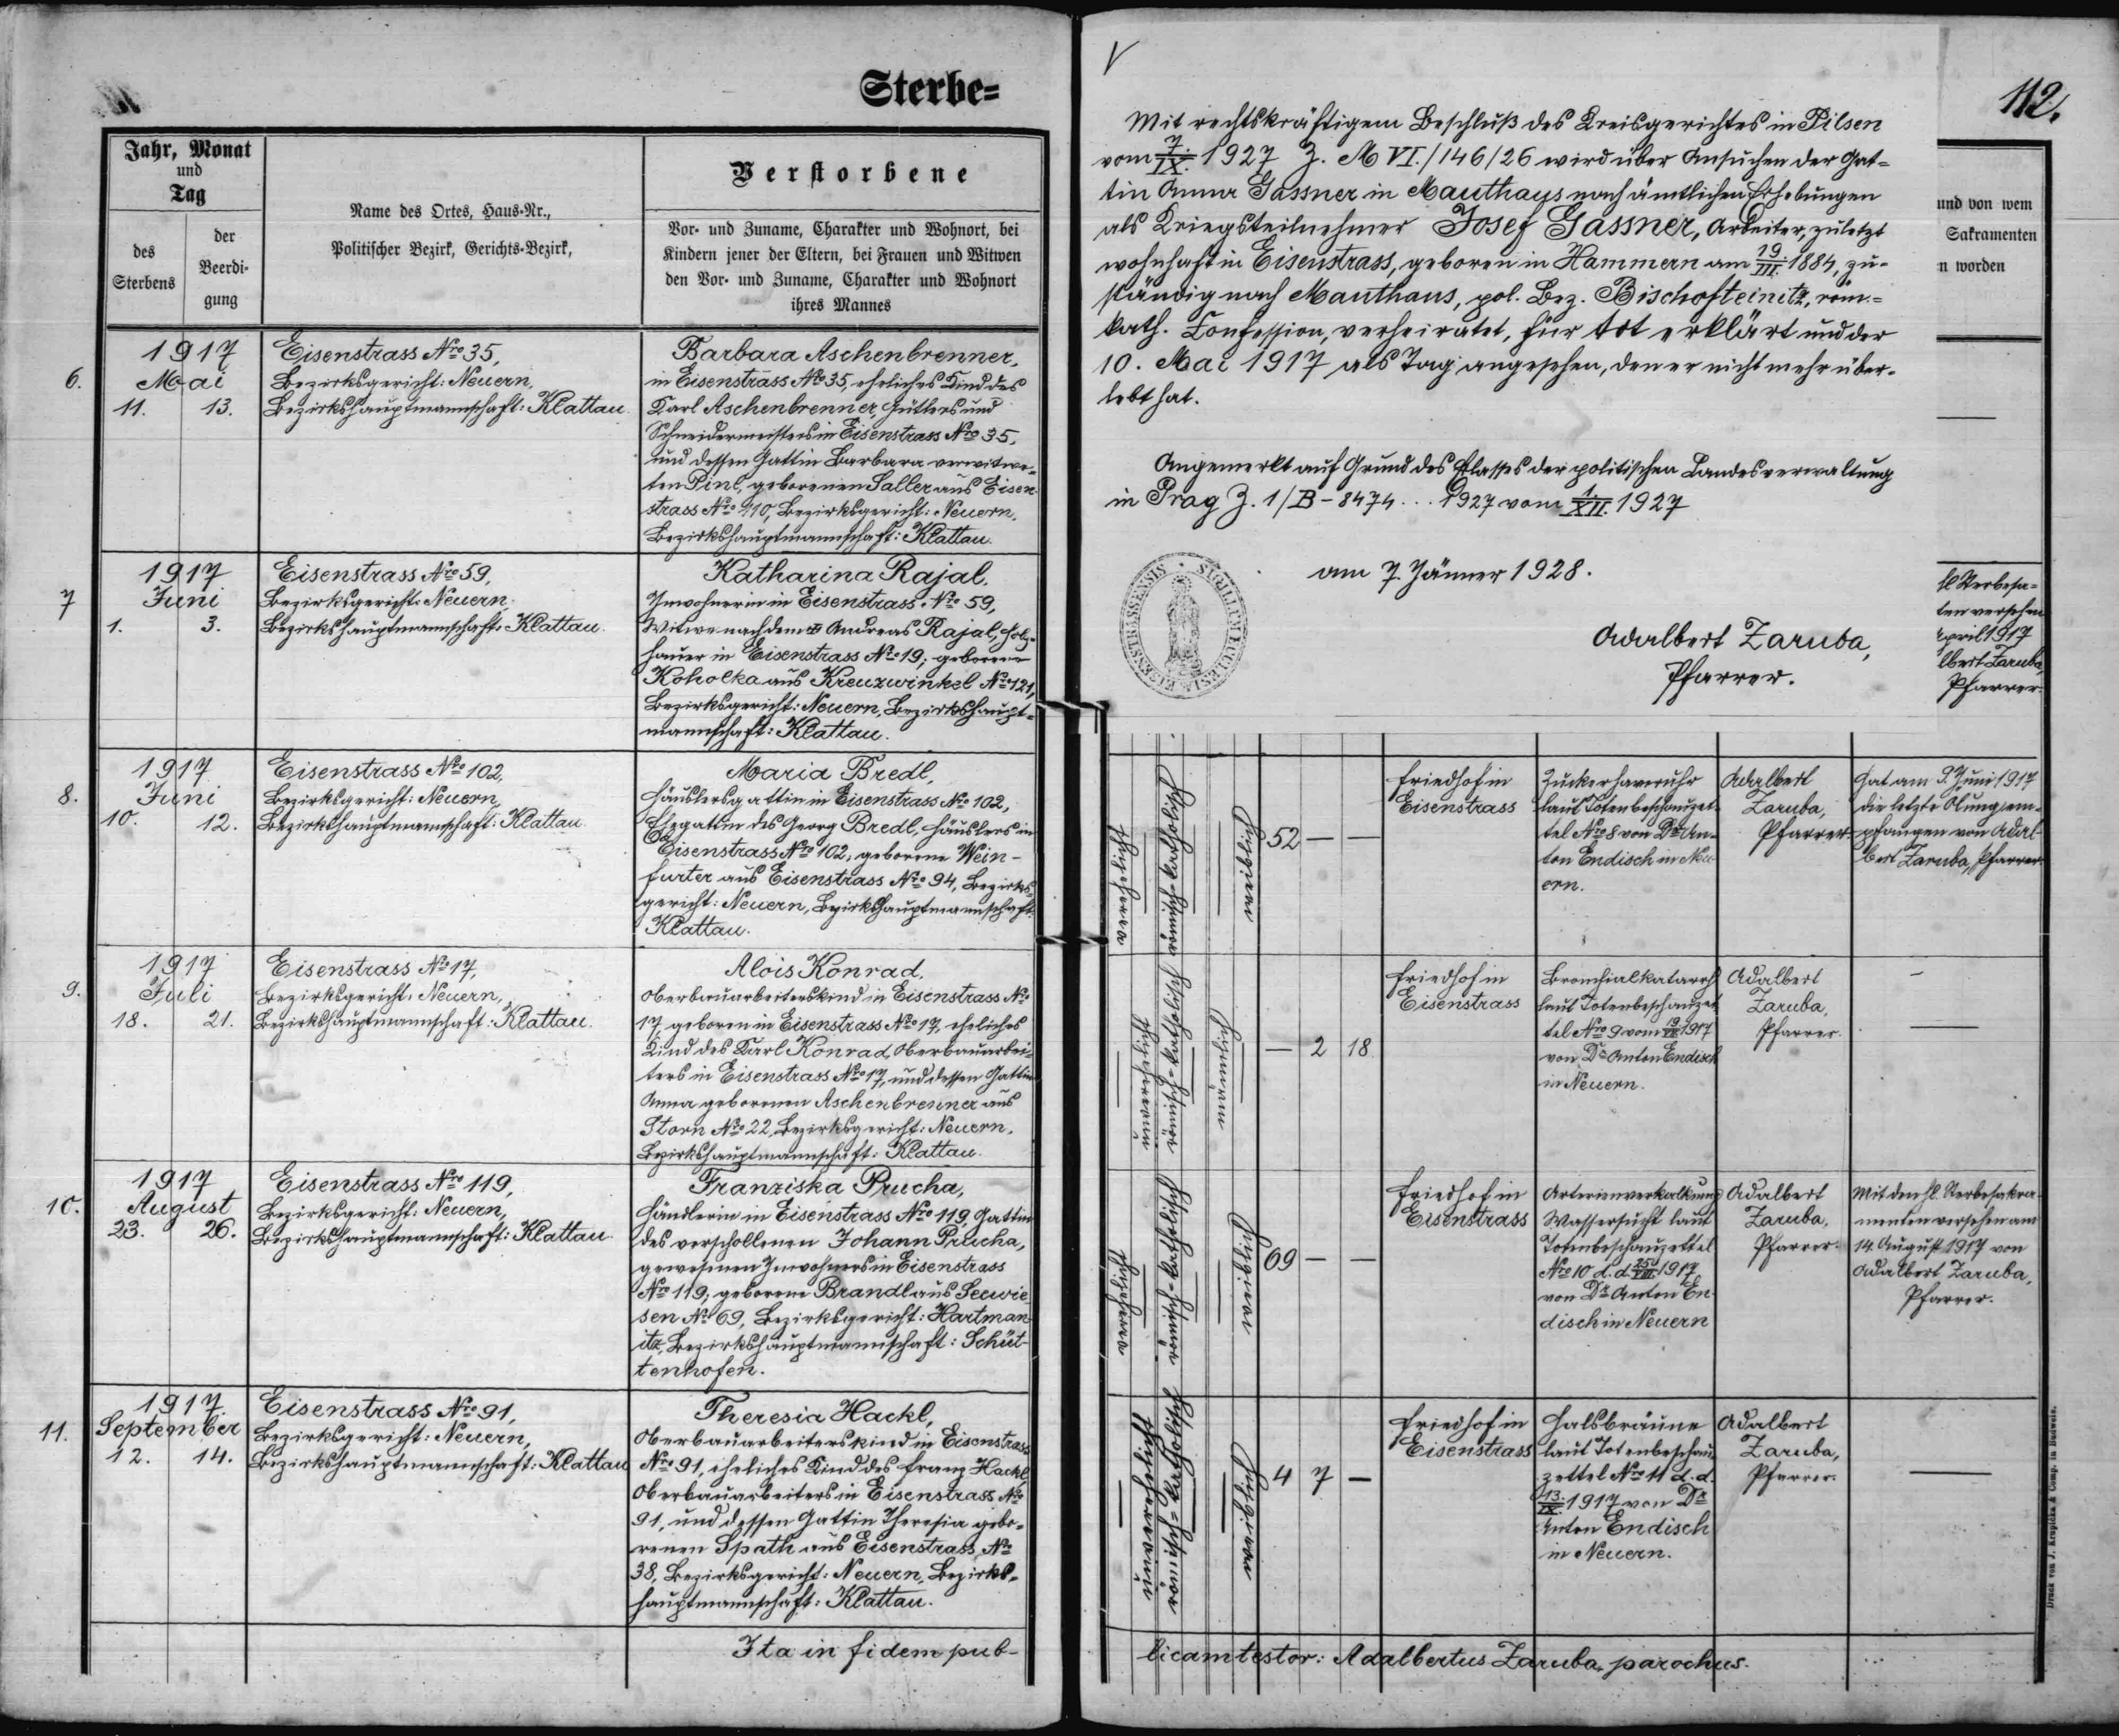 Sterbe=
Jahr, Monat
und
Tag
des
Sterbens
der
Beerdi-
gung
Name des Ortes, Haus-Nr.,
Politischer Bezirk, Gerichts-Bezirk,
Verstorbene
Vor- und Zuname, Charakter und Wohnort, bei
Kindern jener der Eltern, bei Frauen und Witwen
den Vor- und Zuname, Charakter und Wohnort
ihres Mannes
6.
1917
Mai
11. 13.
Eisenstrass Nro 35,
Bezirksgericht: Neuern,
Bezirkshauptmannschaft: Klattau.
Barbara Aschenbrenner,
in Eisenstrass Nro 35, eheliches Kind des
Karl Aschenbrenner, Gütlers und
Schneidermeisters in Eisenstrass Nro 35,
und dessen Gattin Barbara verwitwe-
ten Pinl, geborenen Saller aus Eisen-
strass Nro 110, Bezirksgericht: Neuern,
Bezirkshauptmannschaft: Klattau.
7
1917
Juni
1. 3.
Eisenstrass Nro 59,
Bezirksgericht: Neuern,
Bezirkshauptmannschaft: Klattau.
Katharina Rajal,
Inwohnerin in Eisenstrass Nro 59,
Witwe nach dem Andreas Rajal, Holz-
hauer in Eisenstrass Nro 19; geborene
Koholka aus Kreuzwinkel Nro 121,
Bezirksgericht: Neuern, Bezirkshaupt-
mannschaft: Klattau.
8.
1917
Juni
10. 12.
Eisenstrass Nro 102,
Bezirksgericht: Neuern,
Bezirkshauptmannschaft: Klattau.
Maria Bredl,
Häuslersgattin in Eisenstrass Nro 102,
Ehegattin des Georg Bredl, Häuslers in
Eisenstrass Nro 102, geborene Wein-
furter aus Eisenstrass Nro 94, Bezirks-
gericht: Neuern, Bezirkshauptmannschaft:
Klattau.
9.
1917
Juli
18. 21.
Eisenstrass Nro 17,
Bezirksgericht: Neuern,
Bezirkshauptmannschaft: Klattau.
Alois Konrad,
Oberbauarbeiterskind in Eisenstrass Nro
17, geboren in Eisenstrass Nro 17, eheliches
Kind des Karl Konrad, Oberbauarbei-
ters in Eisenstrass Nro 17, und dessen Gattin
Anna geborenen Aschenbrenner aus
Storn Nro 22, Bezirksgericht: Neuern,
Bezirkshauptmannschaft: Klattau.
10.
1917
August
23. 26.
Eisenstrass Nro 119,
Bezirksgericht: Neuern,
Bezirkshauptmannschaft: Klattau.
Franziska Prucha,
Händlerin in Eisenstrass Nro 119, Gattin
des verschollenen Johann Prucha,
gewesenen Inwohners in Eisenstrass
Nro 119; geborene Brandl aus Seewie-
sen Nro 69, Bezirksgericht: Hartman-
itz, Bezirkshauptmannschaft: Schüt-
tenhofen.
11.
1917
September
12. 14.
Eisenstrass Nro 91,
Bezirksgericht: Neuern,
Bezirkshauptmannschaft: Klattau
Theresia Hackl,
Oberbauarbeiterskind in Eisenstrass
Nro 91, eheliches Kind des Franz Hackl,
Oberbauarbeiters in Eisenstrass Nro
91, und dessen Gattin Theresia gebo-
renen Spath aus Eisenstrass Nro
38, Bezirksgericht: Neuern, Bezirks-
hauptmannschaft: Klattau.
Ita in fidem pub-
V
112.
Mit rechtskräftigem Beschluß des Kreisgerichtes in Pilsen
vom 7./IX. 1927 Z. M VI./146/26 wird über Ansuchen der Gat-
tin Anna Gassner in Mauthaus nach ämtlichen Erhebungen
als Kriegsteilnehmer Josef Gassner, Arbeiter, zuletzt
wohnhaft in Eisenstrass, geboren in Hammern am 19./III. 1884, zu-
ständig nach Mauthaus, pol. Bez. Bischofteinitz, röm.-
kath. Konfession, verheiratet, für tot erklärt und der
10. Mai 1917 als Tag angesehen, den er nicht mehr über-
lebt hat.
Angemerkt auf Grund des Erlasses der politischen Landesverwaltung
in Prag Z. 1/B-8474...1927 vom 1/XII. 1927
am 7. Jänner 1928.
Adalbert Zaruba,
Pfarrer.
SIGILLUM ECCLESIAE EISENSTRASSENSIS
und von wem
Sakramenten
n worden
hl. Sterbesa-
ten versehen
April 1917
lbert Zaruba,
Pfarrer.
verehelicht
römisch-katholisch
weiblich
52 — —
Friedhof in
Eisenstrass
Zuckerharnruhr
laut Totenbeschauzet-
tel Nro 8 von Dr An-
ton Endisch in Neu-
ern.
Adalbert
Zaruba,
Pfarrer.
Hat am 9. Juni 1917
die letzte Ölung em-
pfangen von Adal-
bert Zaruba, Pfarrer.
unverehelicht
römisch-katholisch
männlich
— 2 18
Friedhof in
Eisenstrass
Bronchialkatarrh
laut Totenbeschauzet-
tel Nro 9 vom 19/VII 1917
von Dr Anton Endisch
in Neuern.
Adalbert
Zaruba,
Pfarrer.
verehelicht
römisch-katholisch
weiblich
69 — —
Friedhof in
Eisenstrass
Arterienverkalkung
Wassersucht laut
Totenbeschauzettel
Nro 10 d. d. 25/VIII 1917
von Dr Anton En-
disch in Neuern
Adalbert
Zaruba,
Pfarrer.
Mit den hl. Sterbesakra-
menten versehen am
14. August 1917 von
Adalbert Zaruba,
Pfarrer.
unverehelicht
römisch-katholisch
weiblich
4 7 —
Friedhof in
Eisenstrass
Halsbräune
laut Totenbeschau-
zettel Nro 11 d. d.
13./IX. 1917 von Dr
Anton Endisch
in Neuern.
Adalbert
Zaruba,
Pfarrer.
licam testor: Adalbertus Zaruba, parochus.
Druck von J. Krapicka & Comp. in Budweis.